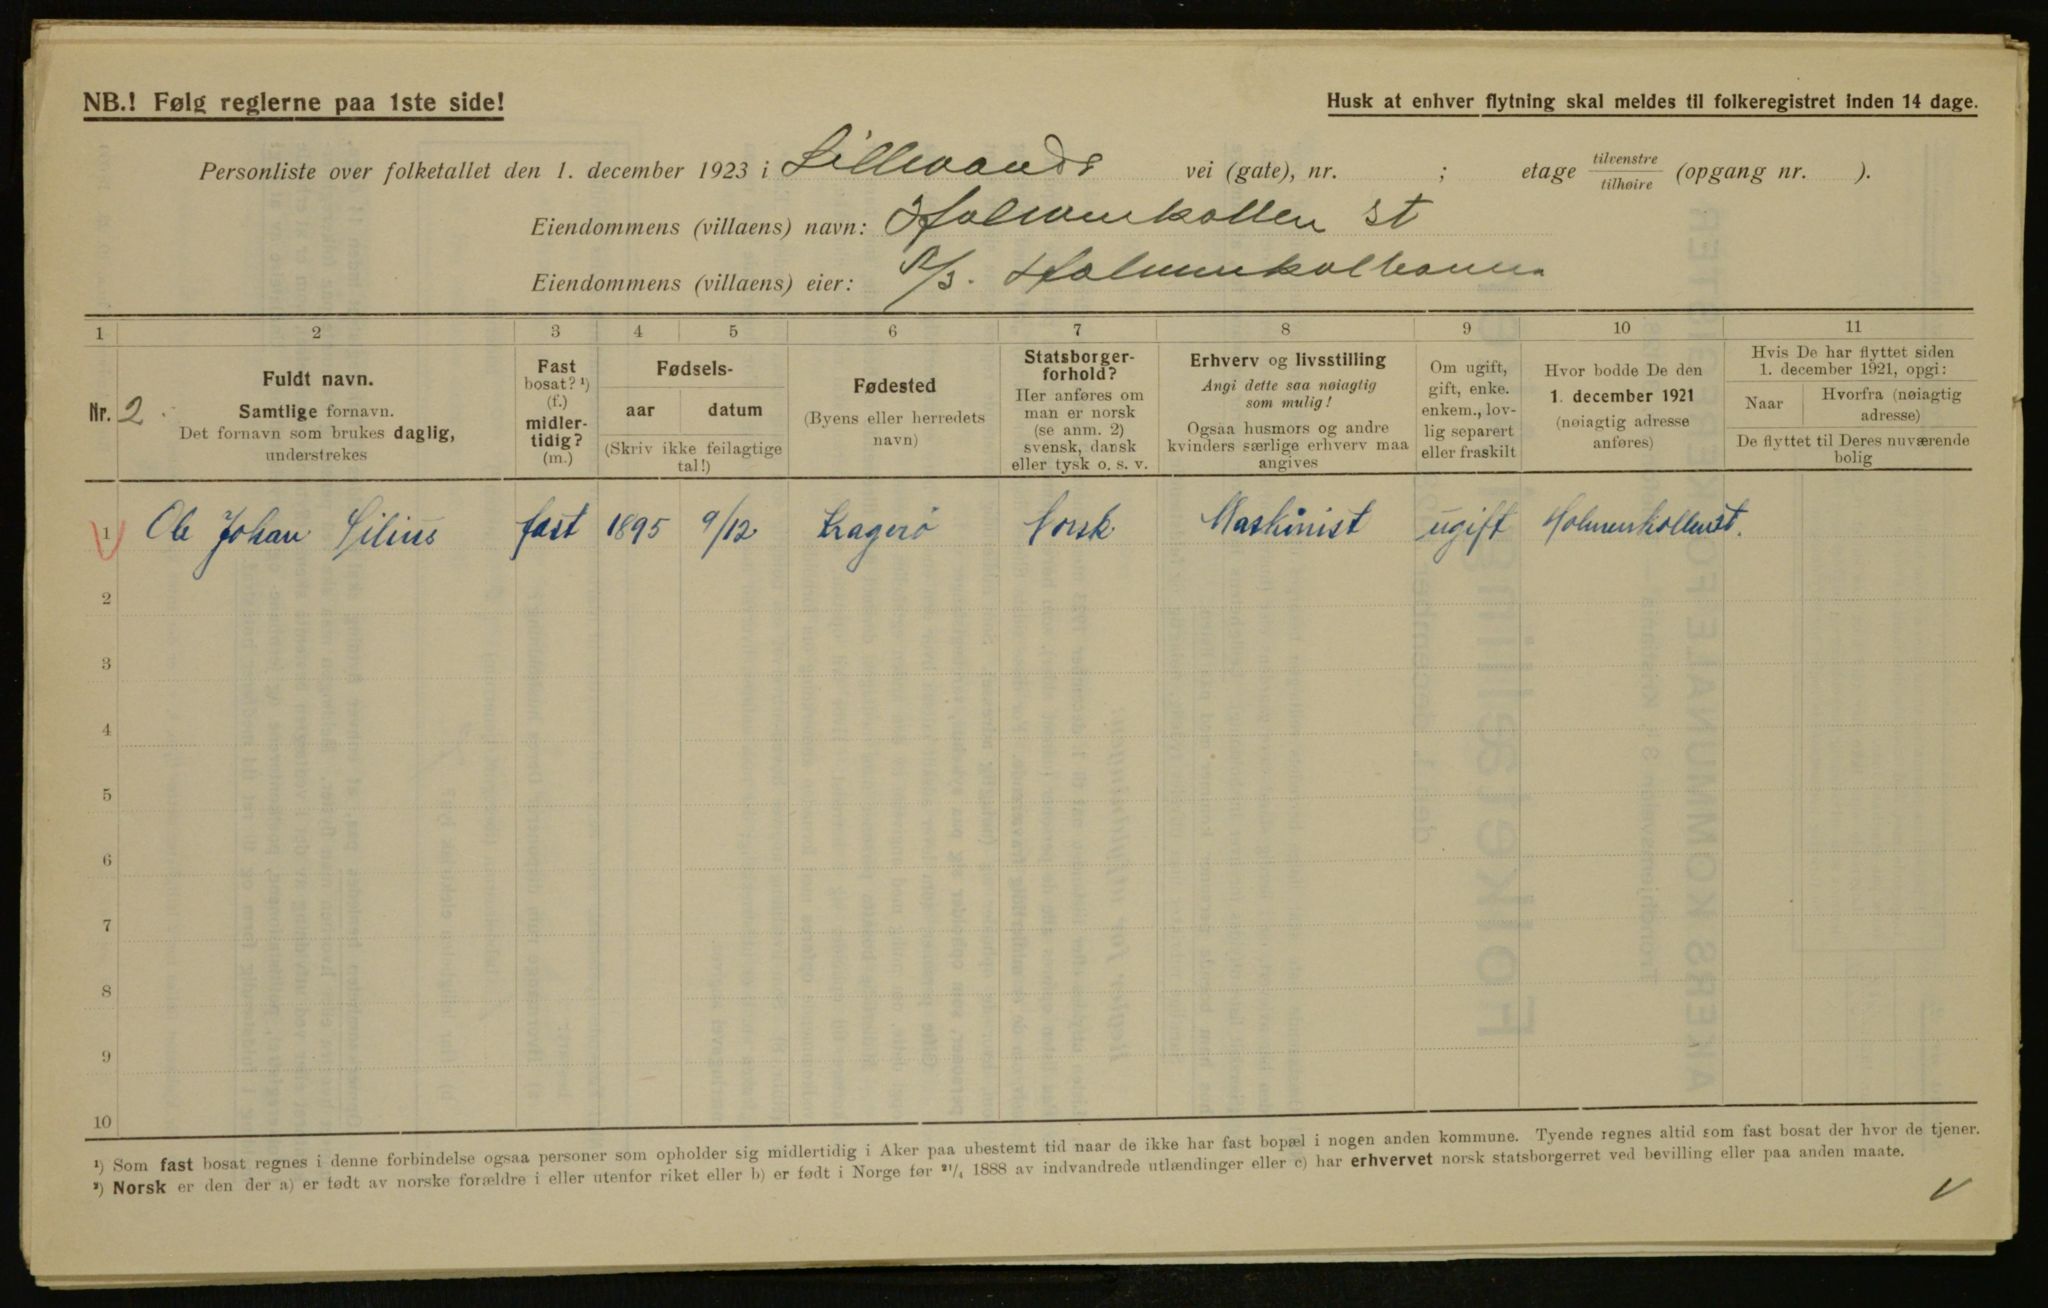 NB.! Følg reglerne paa 1ste side!
Husk at enhver flytning skal meldes til folkeregistret inden 14 dage.
Personliste over folketallet den 1. december 1923 i Lillevands vei (gate), nr. ; etage tilvenstre tilhøire (opgang nr. ).
Eiendommens (villaens) navn: Holmenkollen st
Eiendommens (villaens) eier: A/S. Holmenkolbanen
1 2 3 4 5 6 7 8 9 10 11
Nr. 2.
Fuldt navn.
Samtlige fornavn.
Det fornavn som brukes daglig,
understrekes
Fast
bosat? ¹)
(f.)
midler-
tidig?
(m.)
Fødsels-
aar datum
(Skriv ikke feilagtige
tal!)
Fødested
(Byens eller herredets
navn)
Statsborger-
forhold?
Her anføres om
man er norsk
(se anm. 2)
svensk, dansk
eller tysk o. s. v.
Erhverv og livsstilling
Angi dette saa nøiagtig
som mulig!
Ogsaa husmors og andre
kvinders særlige erhverv maa
angives
Om ugift,
gift, enke.
enkem., lov-
lig separert
eller fraskilt
Hvor bodde De den
1. december 1921
(nøiagtig adresse
anføres)
Hvis De har flyttet siden
1. december 1921, opgi:
Naar
Hvorfra (nøiagtig
adresse)
De flyttet til Deres nuværende
bolig
1 Ole Johan Silius fast 1895 9/12 Kragerö Norsk. Maskinist ugift Holmenkollenst.
2
3
4
5
6
7
8
9
10
¹) Som fast bosat regnes i denne forbindelse ogsaa personer som opholder sig midlertidig i Aker paa ubestemt tid naar de ikke har fast bopæl i nogen anden kommune. Tyende regnes altid som fast bosat der hvor de tjener.
²) Norsk er den der a) er født av norske forældre i eller utenfor riket eller b) er født i Norge før ²¹/₄ 1888 av indvandrede utlændinger eller c) har erhvervet norsk statsborgerret ved bevilling eller paa anden maate.